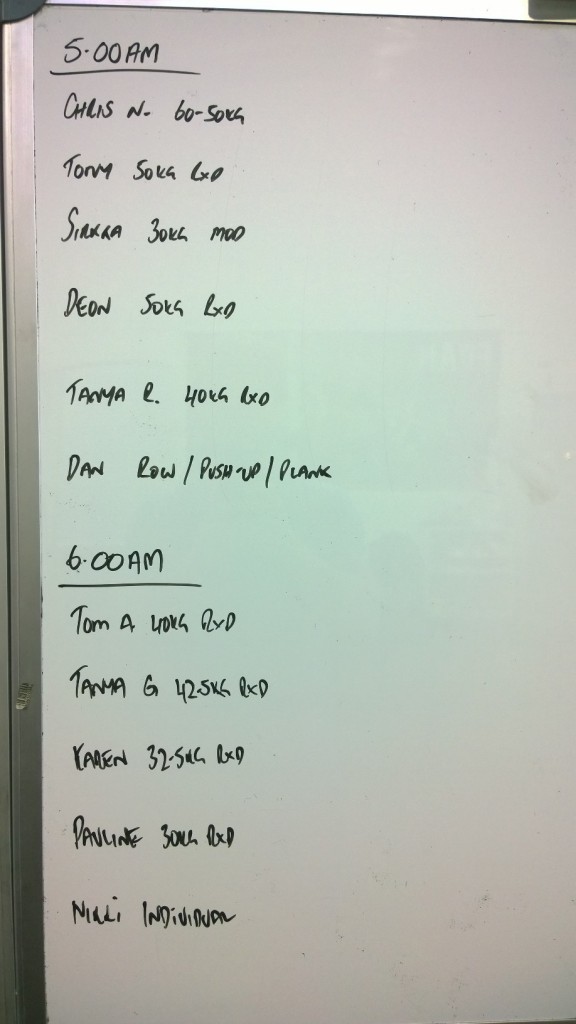 5.00AM
CHRIS N. 60-50KG
TONY 50KG RXD
SIRKKA 30KG MOD
DEON 50KG RXD
TANYA R. 40KG RXD
DAN ROW/PUSH-UP/PLANK
6.00AM
TOM A 40KG RXD
TANYA G 42.5KG RXD
KAREN 32.5KG RXD
PAULINE 30KG RXD
NIKKI INDIVIDUAL